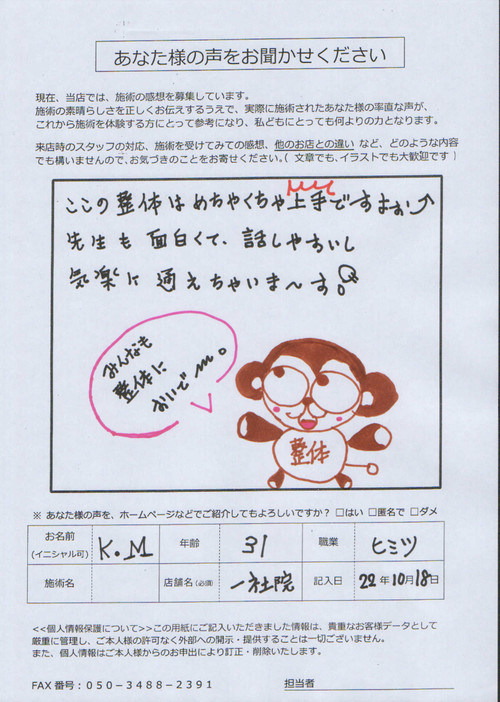 あなた様の声をお聞かせください
現在、当店では、施術の感想を募集しています。
施術の素晴らしさを正しくお伝えするうえで、実際に施術されたあなた様の率直な声が、
これから施術を体験する方にとって参考になり、私どもにとっても何よりの力となります。
来店時のスタッフの対応、施術を受けてみての感想、他のお店との違い など、どのような内容
でも構いませんので、お気づきのことをお寄せください。( 文章でも、イラストでも大歓迎です )
ここの整体はめちゃくちゃ上手ですよぉ↗
先生も面白くて、話しやすいし
気楽に通えちゃいま〜す。
みんなも
整体に
おいで〜。
整体
※ あなた様の声を、ホームページなどでご紹介してもよろしいですか? □はい □匿名で □ダメ
お名前
(イニシャル可)
K.M
年齢
31
職業
ヒミツ
施術名
店舗名(必須)
一社院
記入日
22年10月18日
<<個人情報保護について>>この用紙にご記入いただきました情報は、貴重なお客様データとして
厳重に管理し、ご本人様の許可なく外部への開示・提供することは一切ございません。
また、個人情報はご本人様からのお申出により訂正・削除いたします。
FAX 番号:050-3488-2391
担当者